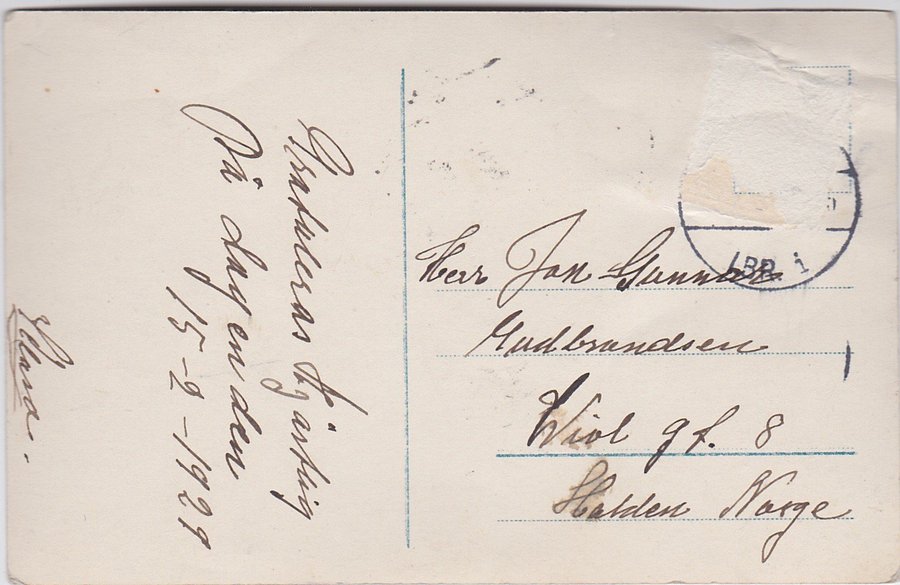 Gratuleras hjärtlig
På dagen den
15-2-1929
Herr Jon Gunnar
Gudbrandsen
Wiol gt. 8
Halden Norge